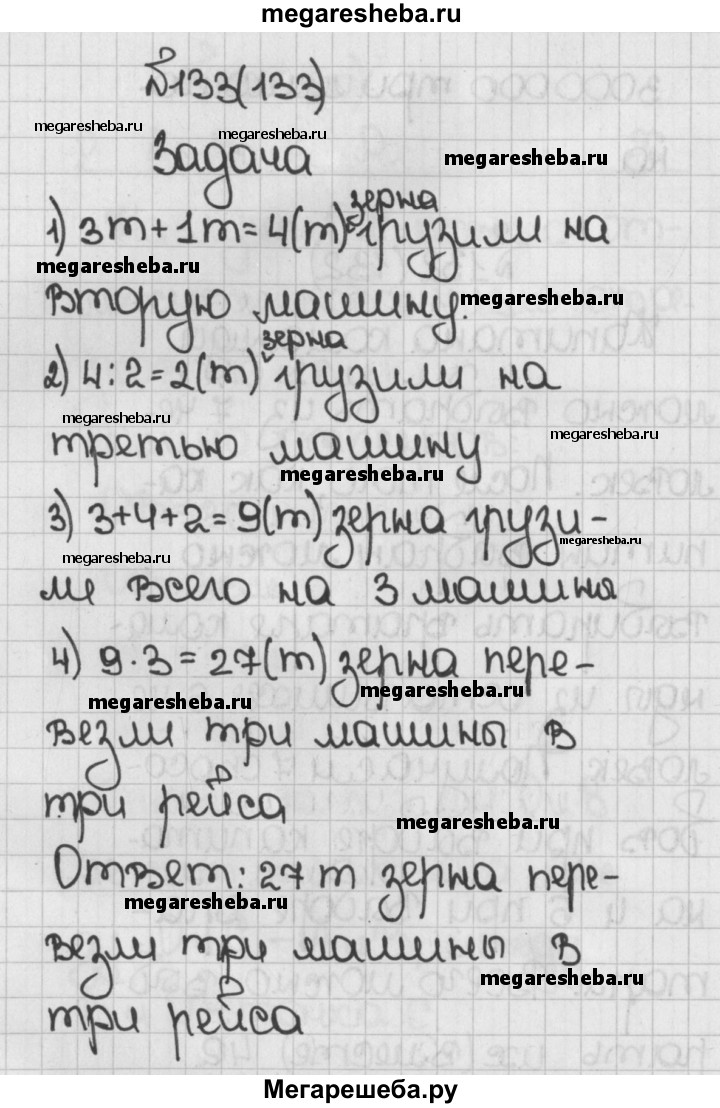 megaresheba.ru
№133(133)
megaresheba.ru megaresheba.ru megaresheba.ru
Задача
зерна
1) 3т + 1т = 4(т) грузили на
megaresheba.ru
вторую машину. megaresheba.ru
зерна
2) 4 : 2 = 2(т) грузили на
megaresheba.ru megaresheba.ru
третью машину
megaresheba.ru
3) 3+4+2 = 9(т) зерна грузи-
megaresheba.ru
megaresheba.ru
ли всего на 3 машины
4) 9 · 3 = 27(т) зерна пере-
megaresheba.ru megaresheba.ru
везли три машины в
три рейса
megaresheba.ru
Ответ: 27 т зерна пере-
megaresheba.ru
везли три машины в
megaresheba.ru
три рейса
Мегарешеба.ру